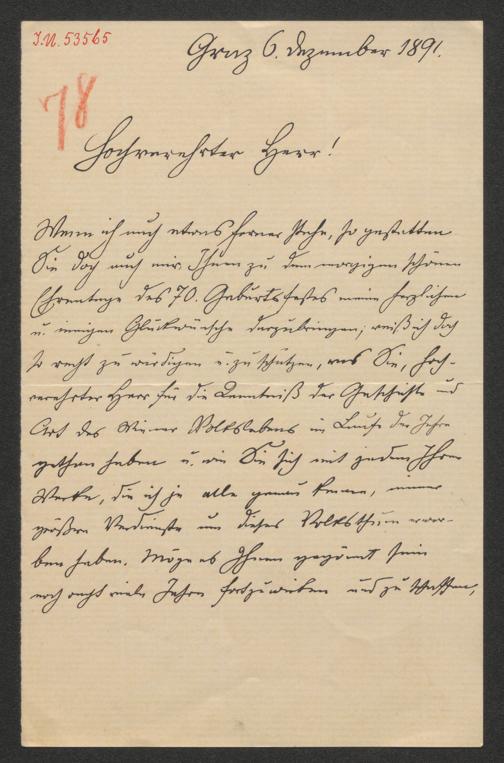 I.N. 53565
Graz 6. Dezember 1891.
78
Hochverehrter Herr!
Wenn ich auch etwas ferner stehe, so gestatten
Sie doch auch mir Ihnen zu dem morgigen schönen
Ehrentage des 70. Geburtsfestes meine herzlichen
u. innigen Glückwünsche darzubringen; weiß ich doch
so recht zu würdigen u. zu schätzen, was Sie, hoch-
verehrter Herr für die Kenntniß der Geschichte und
Art des Wiener Volkslebens im Laufe der Jahre
gethan haben u. wie Sie sich mit jedem Ihrer
Werke, die ich ja alle genau kenne, immer
größere Verdienste um dieses Volksthum erwor-
ben haben. Möge es Ihnen gegönnt sein
noch recht viele Jahre fortzuwirken und zu schaffen,